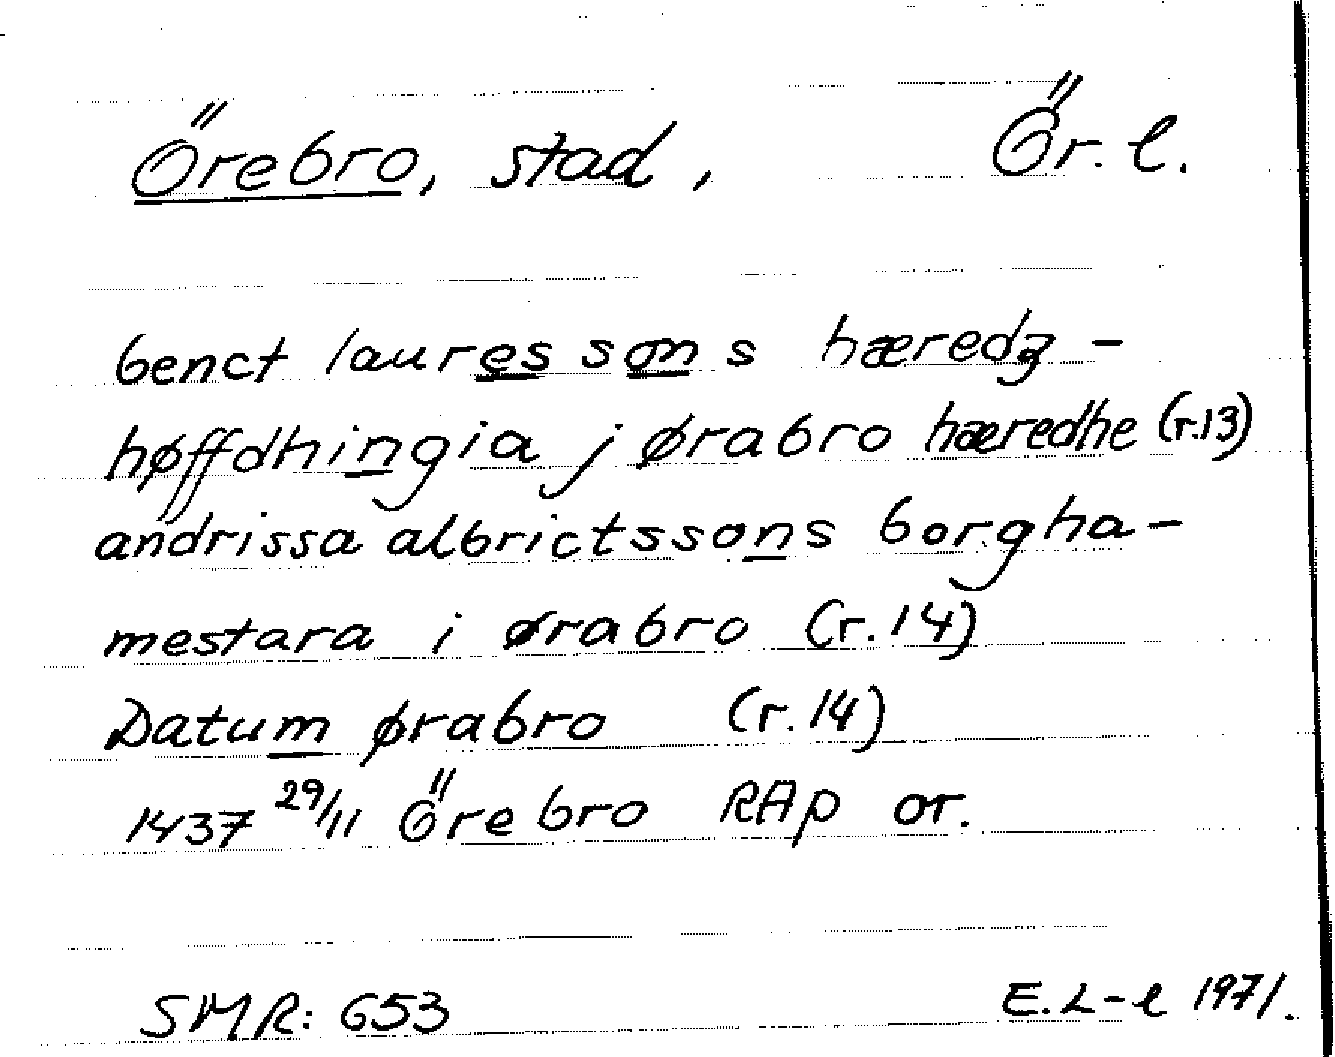 Örebro, stad, Ör. l.
benct lauressons hæredz-
høffdhingia j ørabro hæredhe (r.13)
andrissa albrictssons borgha-
mestara i ørabro (r.14)
Datum ørabro (r.14)
1437 29/11 Örebro RAp or.
SMR: 653 E.L-l 1971.